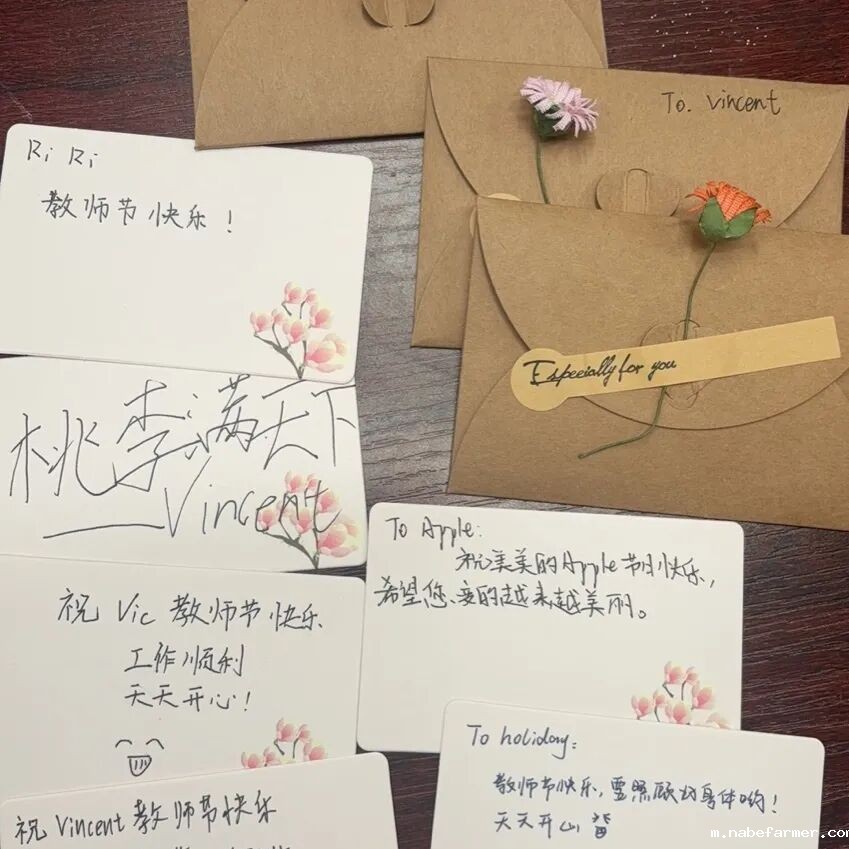 To. Vincent
Especially for you
Ri Ri
教师节快乐！
桃李满天下
——Vincent
祝 Vic 教师节快乐
工作顺利
天天开心！
祝 Vincent 教师节快乐
To Apple:
祝美美的Apple节日快乐，
希望您变的越来越美丽。
To holiday:
教师节快乐，要照顾好身体哟！
天天开心
m.nabefarmer.com